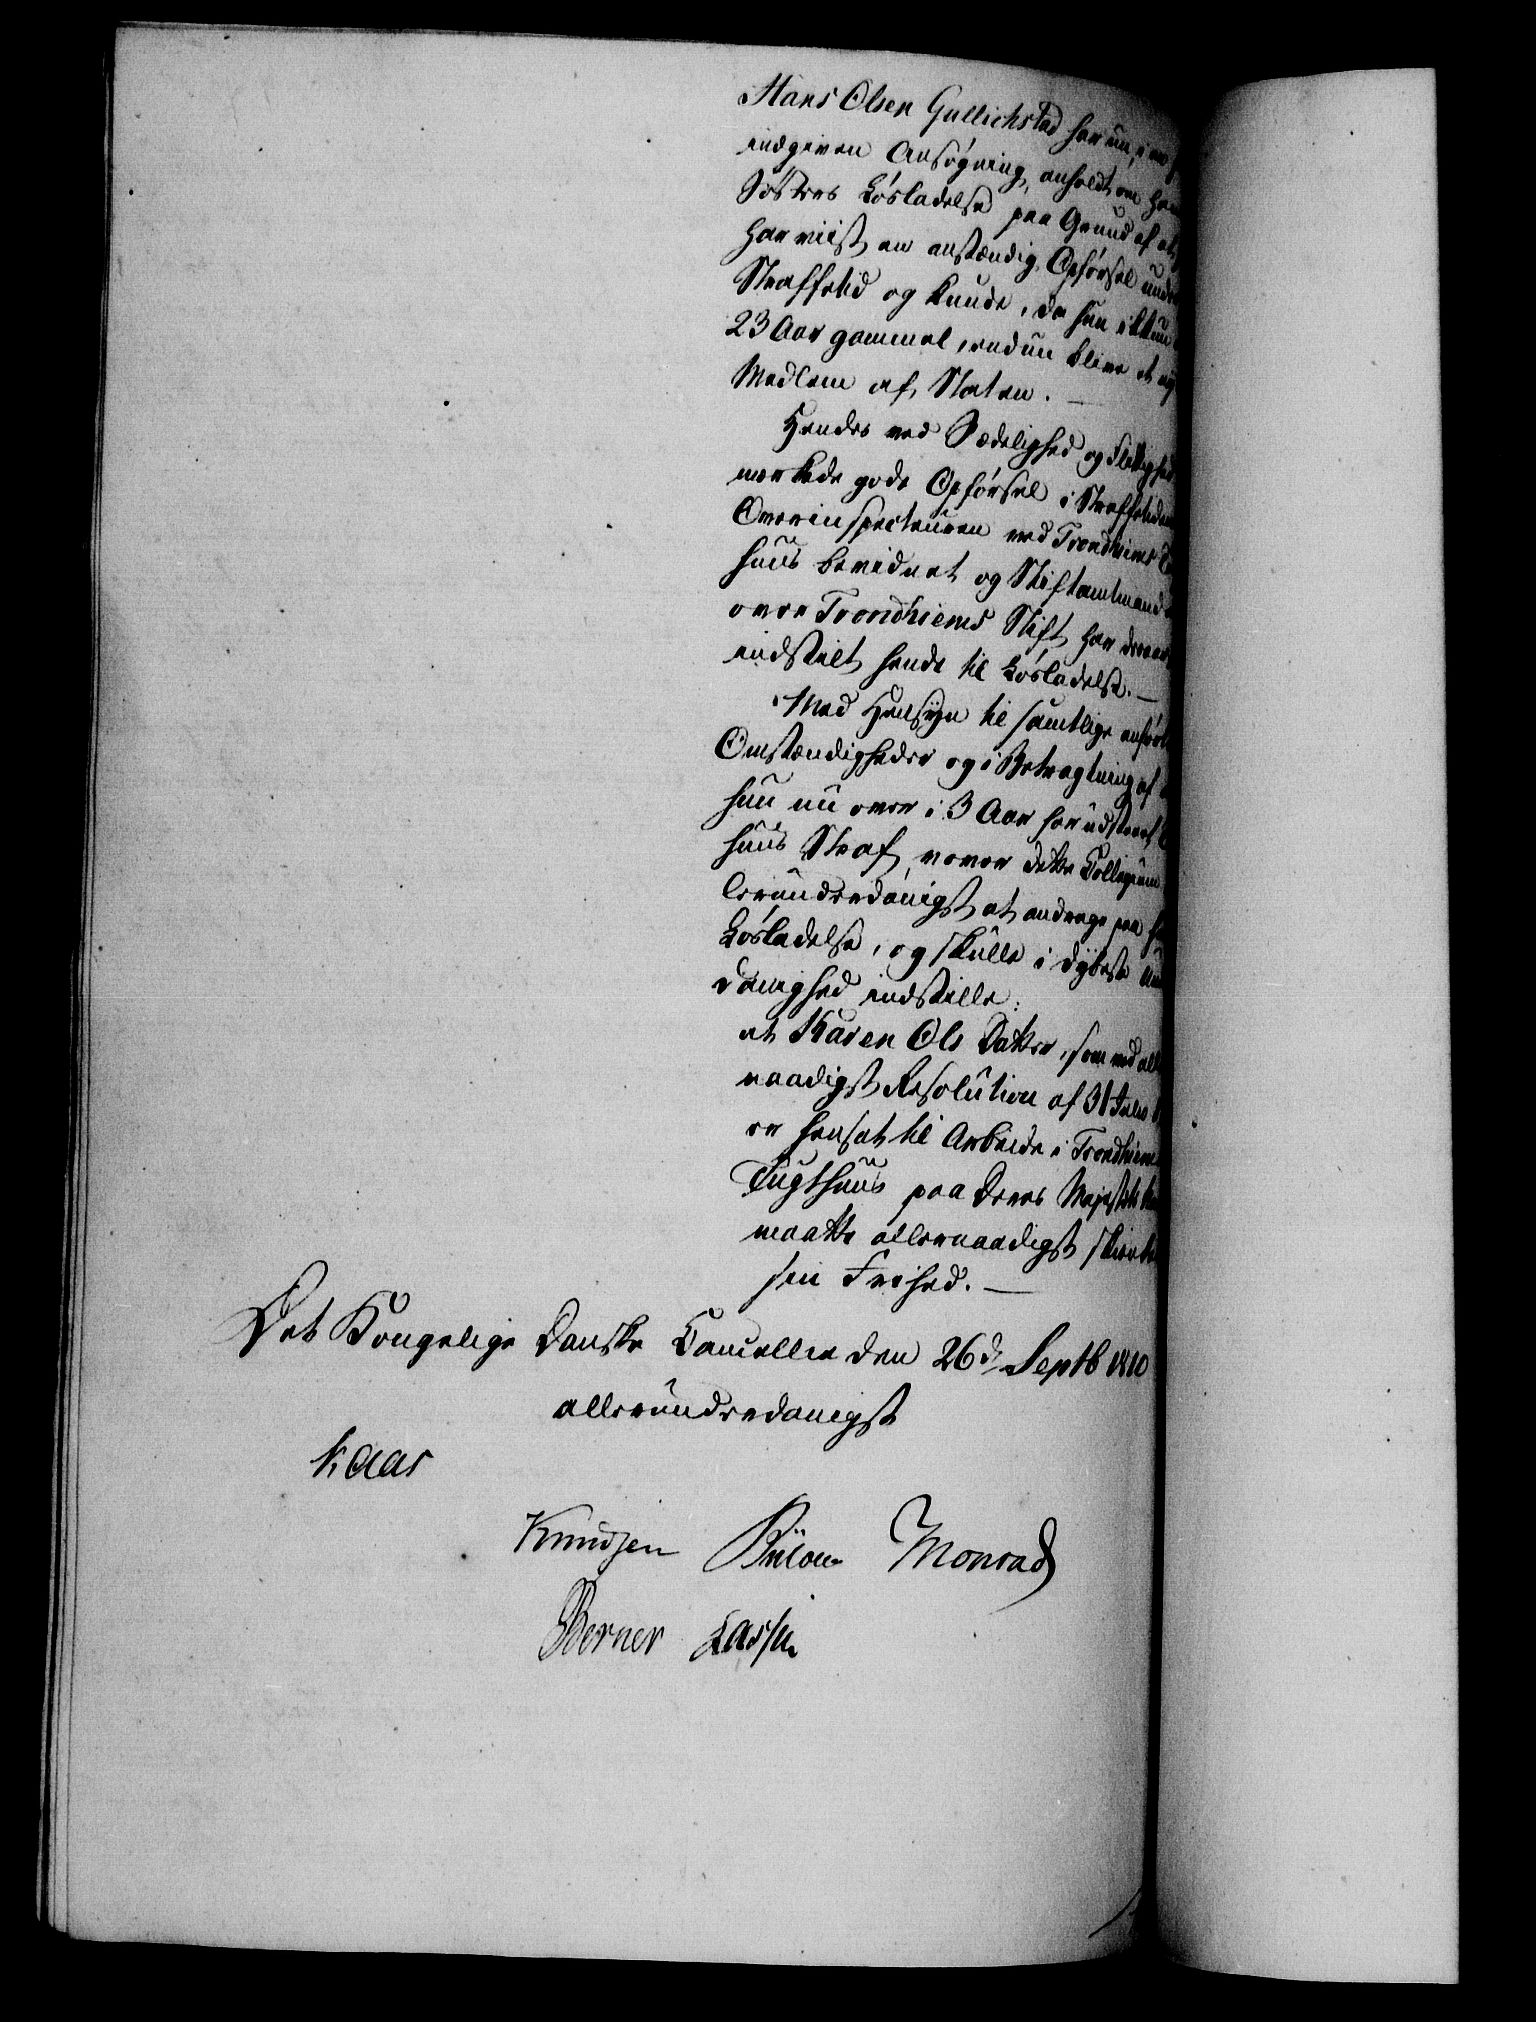 Hans Olsen Gullichstad har nu, i en
indgiven Ansøgning, anholdt om
Søsters Løsladelse paa Grund af at
har viist en anstændig Opførsel under
Straffetid og kunde, da hun ikkun
23 Aar gammel, endnu blive et
Medlem af Staten. —
Hendes ved Sædelighed og Flittighed
mærkede gode Opførsel i Straffetiden
Overinspecteuren ved Trondhiems
huus bevidnet og Stiftamtmand
over Trondhiems Stift har
indstilt hende til Løsladelse. —
Med Hensyn til samtlige anførte
Omstændigheder og i Betragtning af
hun nu over i 3 Aar har udstaaet
huus Straf, vover dette Collegium
lerunderdanigst at andrage paa
Løsladelse, og skulle i dybeste
danighed indstille:
at Karen Ols Datter, som ved
naadigst Resolution af 31 Julii
er hensat til Arbeide i Trondhiems
Tugthuus paa Deres Majestæts
maatte allernaadigst skienkes
sin Frihed. —
Det Kongelige Danske Cancellie den 26d Septb 1810
allerunderdanigst
Kaas
Knudsen Bülow Monrad
Berner Lassen